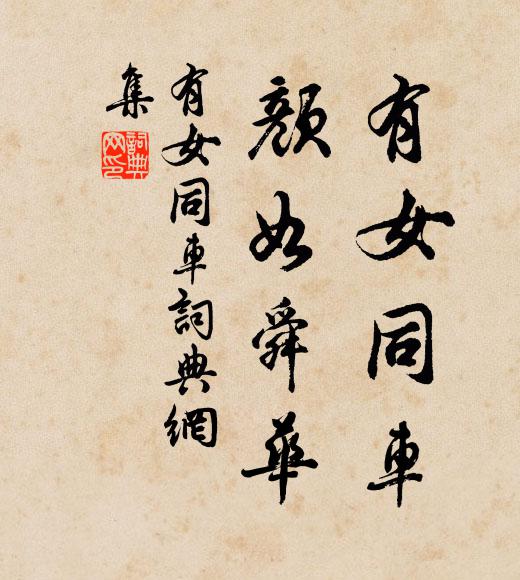 有女同車
顏如舜華
有女同車詞典網
集
詞典網印